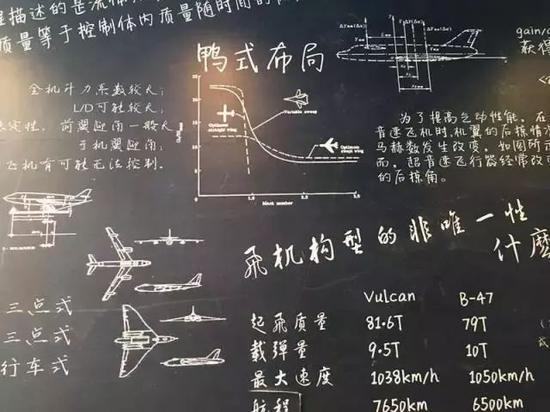 程描述的是流体
质量等于控制体内质量随时间的
鸭式布局
gain/
获得
全机升力系数较大;
L/D可能较大;
稳定性, 前翼迎角一般大
于机翼迎角;
飞机有可能无法控制.
Variable sweep
Optimum straight wing
Optimum swept wing
Mach number
为了提高气动性能, 在
音速飞机时, 机翼的后掠情
马赫数发生改变, 如图所示
而, 超音速飞行器经常改
的后掠角.
飛机构型的非唯一性
什麽
三点式
三点式
行车式
Vulcan B-47
起飛质量 81.6T 79T
载弹量 9.5T 10T
最大速度 1038km/h 1050km/h
航程 7650km 6500km